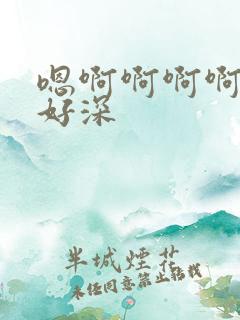 嗯啊啊啊啊
好深
半城煙花
未经同意禁止转载